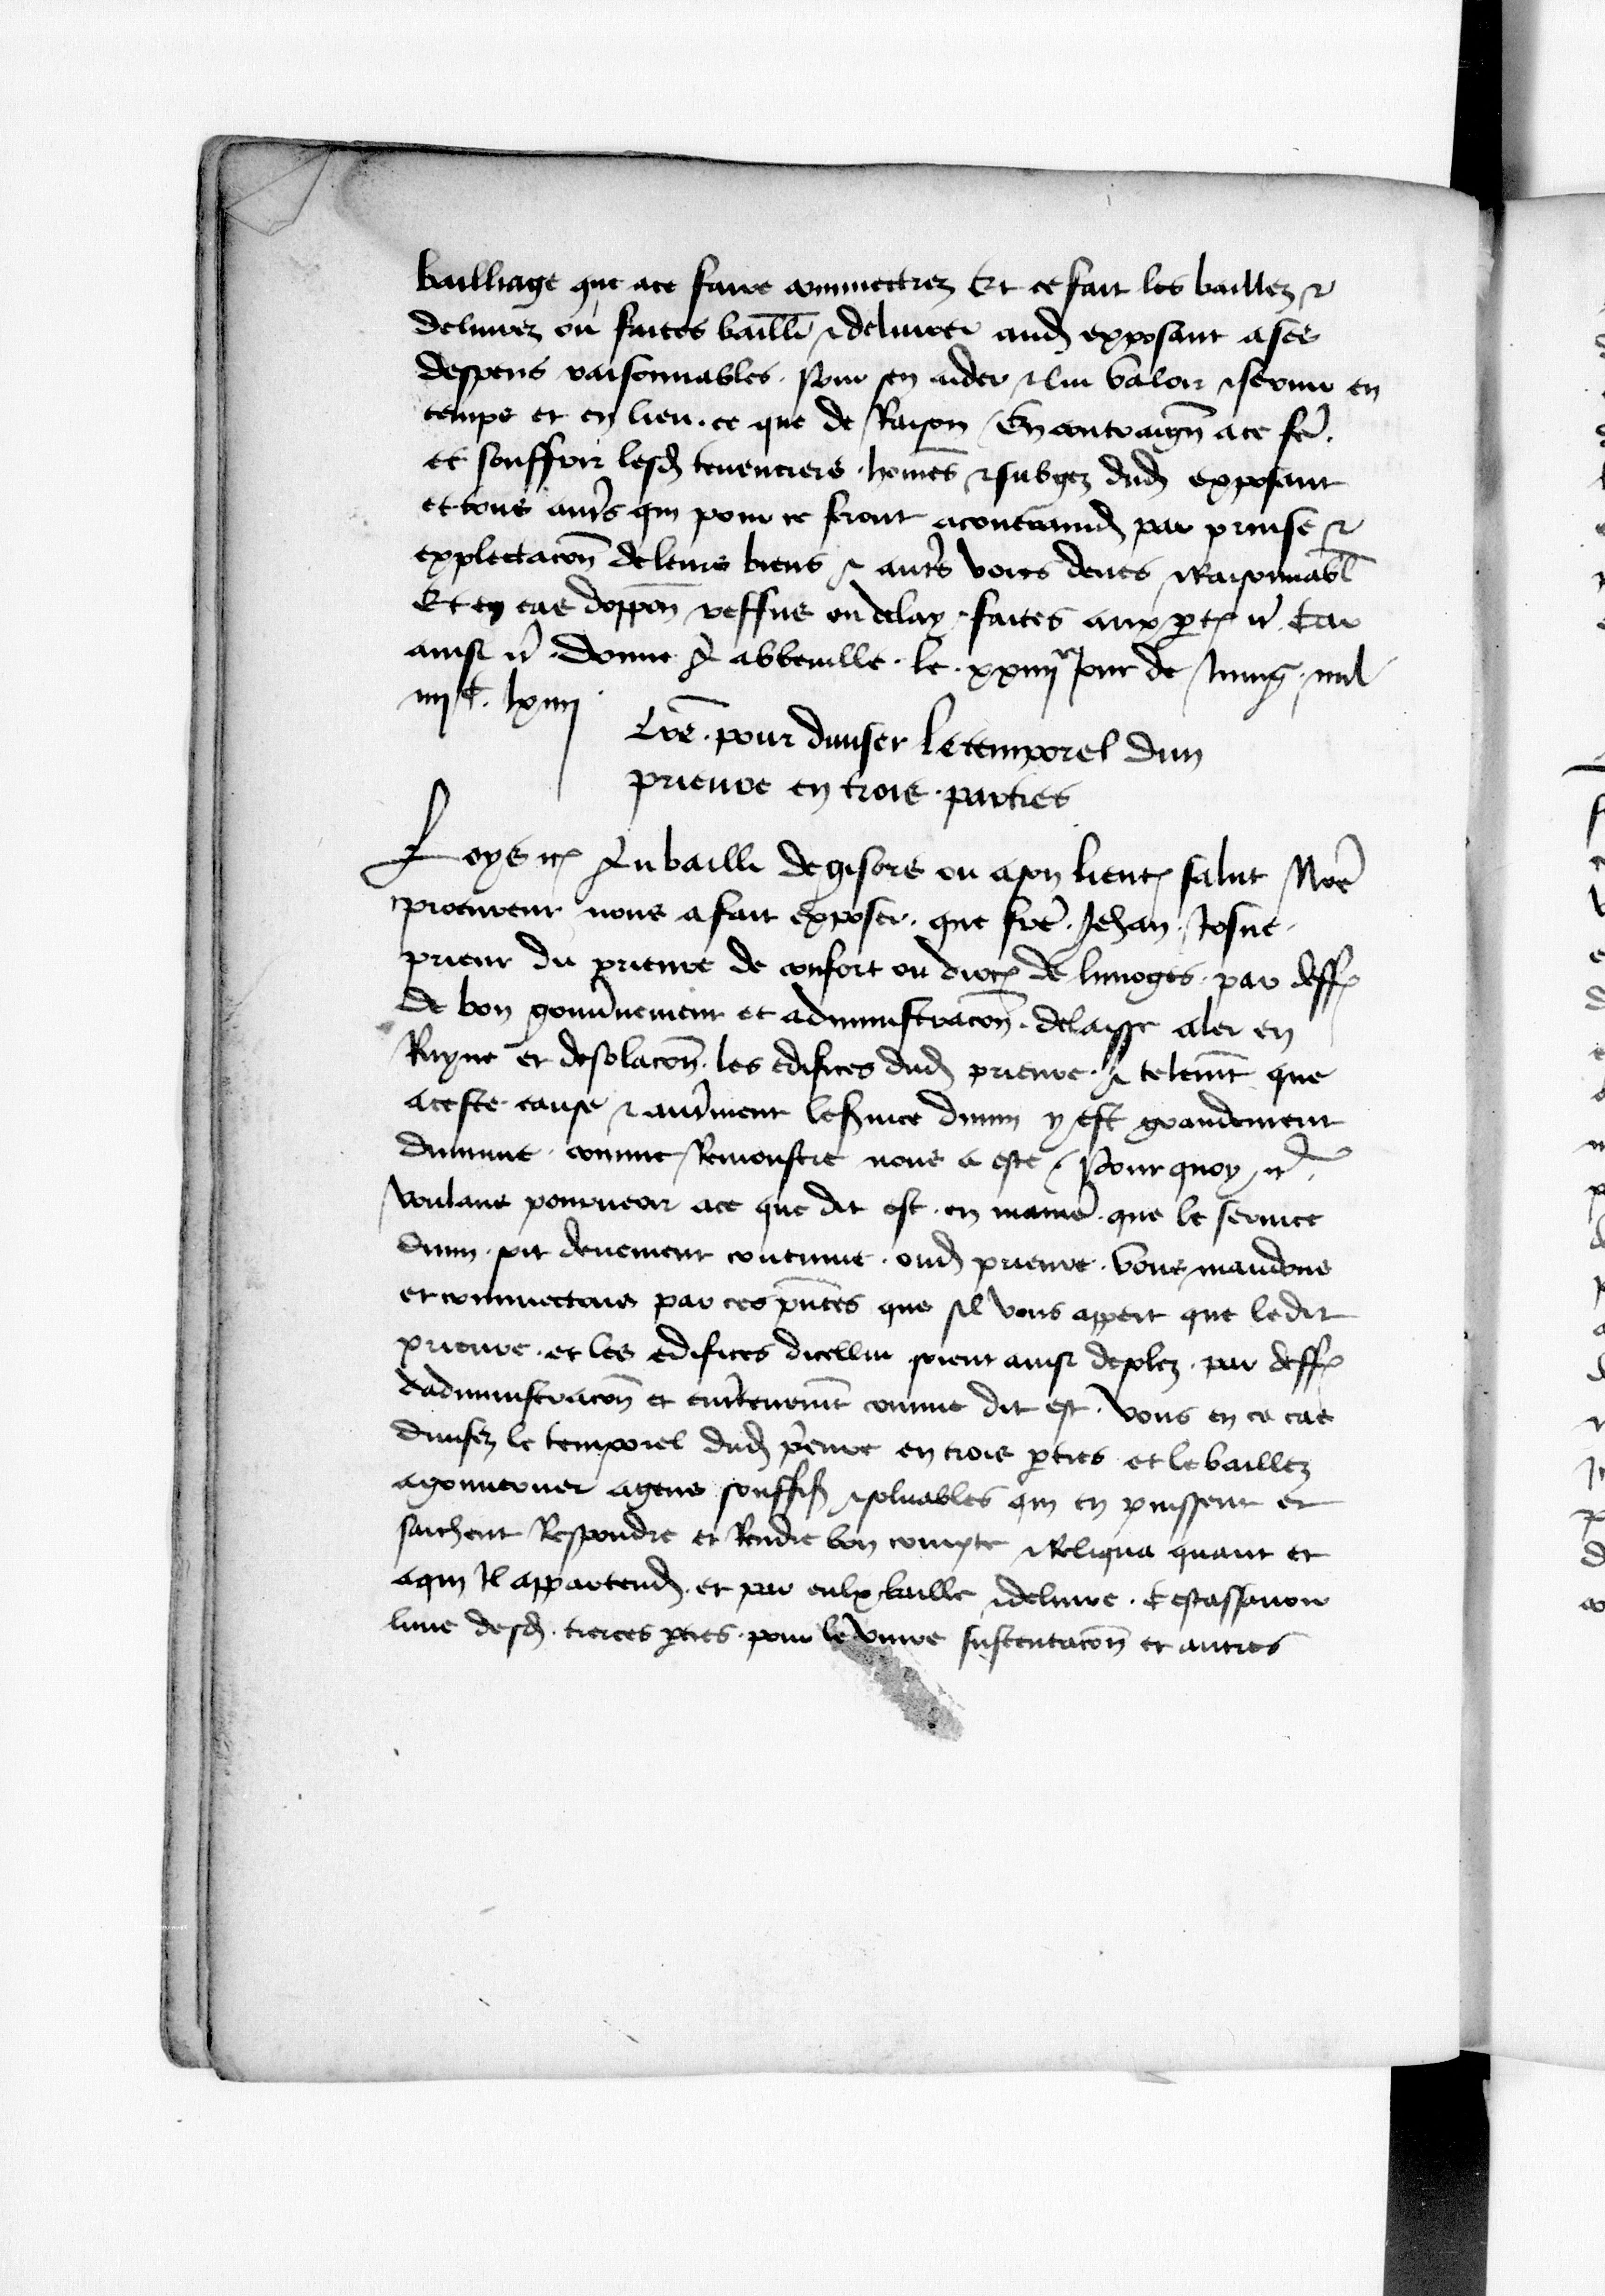 bailliage que ace faire commectrez Et ce fait les baillez &
deliurez ou faites baill̄ & deliurer aud exposant a ses
despens raisonnables . Pour sen aider & lui valoir & seruir en
temps et en lieu . ce que de Raison En contraign̄ ace fē .
et souffrir lesd tenenciers . hom̄es & subgez dud exposant
et tous aut̄s qui pour ce seront acontraindͬ par prinse &
explectacon̄ de leurs biens & aut̄s voies deues & Raisonnabl̄
Et en cas doppon̄ reffus ou delay . faites aux p̄tͬ ic̄ Car
ainsi ic̄ . Donne A abbeuille . le . xxiiij jour de Juing . mil
iiij c . lxiiij
Lr̄e . pour diuiser le temporel dun
prieure en trois . parties
Loys ic̄ Au bailli de gisors ou a son lieut salut Nr̄e
procureur nous a fait exposer . que fr̄e . Jehan . Josne .
prieur du prieure de confort ou dioc de limoges . par deff
de bon gouu̅nement et administracon̄ . delaisse aler en
Ruyne et desolacon̄ . les edifices dud prieure . & telem̄t que
aceste cause & aut̄ment le s̄uice diuin y est grandement
diminue . comme Remonstre nous a este & Pour quoy ic̄ .
voulans pourueoir ace que dit est . en manie̅ . que le seruice
diuin . soit deuement continue . oud prieure . vous mandons
et commectons par ces pn̄tes que sil vous appert que ledit
prieure . et les edifices dicellui soient ainsi desolez . par deff
dadministracon̄ et ent̄tenem̄t comme dit est . vous en ce cas
diuisez le temporel dud p̄eure en trois p̄ties et le baillez
agouuerner agens souffis & soluables qui en puissent et
sachent Respondre et Rendre bon compte & Reliqua quant et
aqui Il appartendͬ . et par eulx baille & deliure . Cest assauoir
lune desd . tierces p̄ties . pour le viure sustentacon̄ et autres